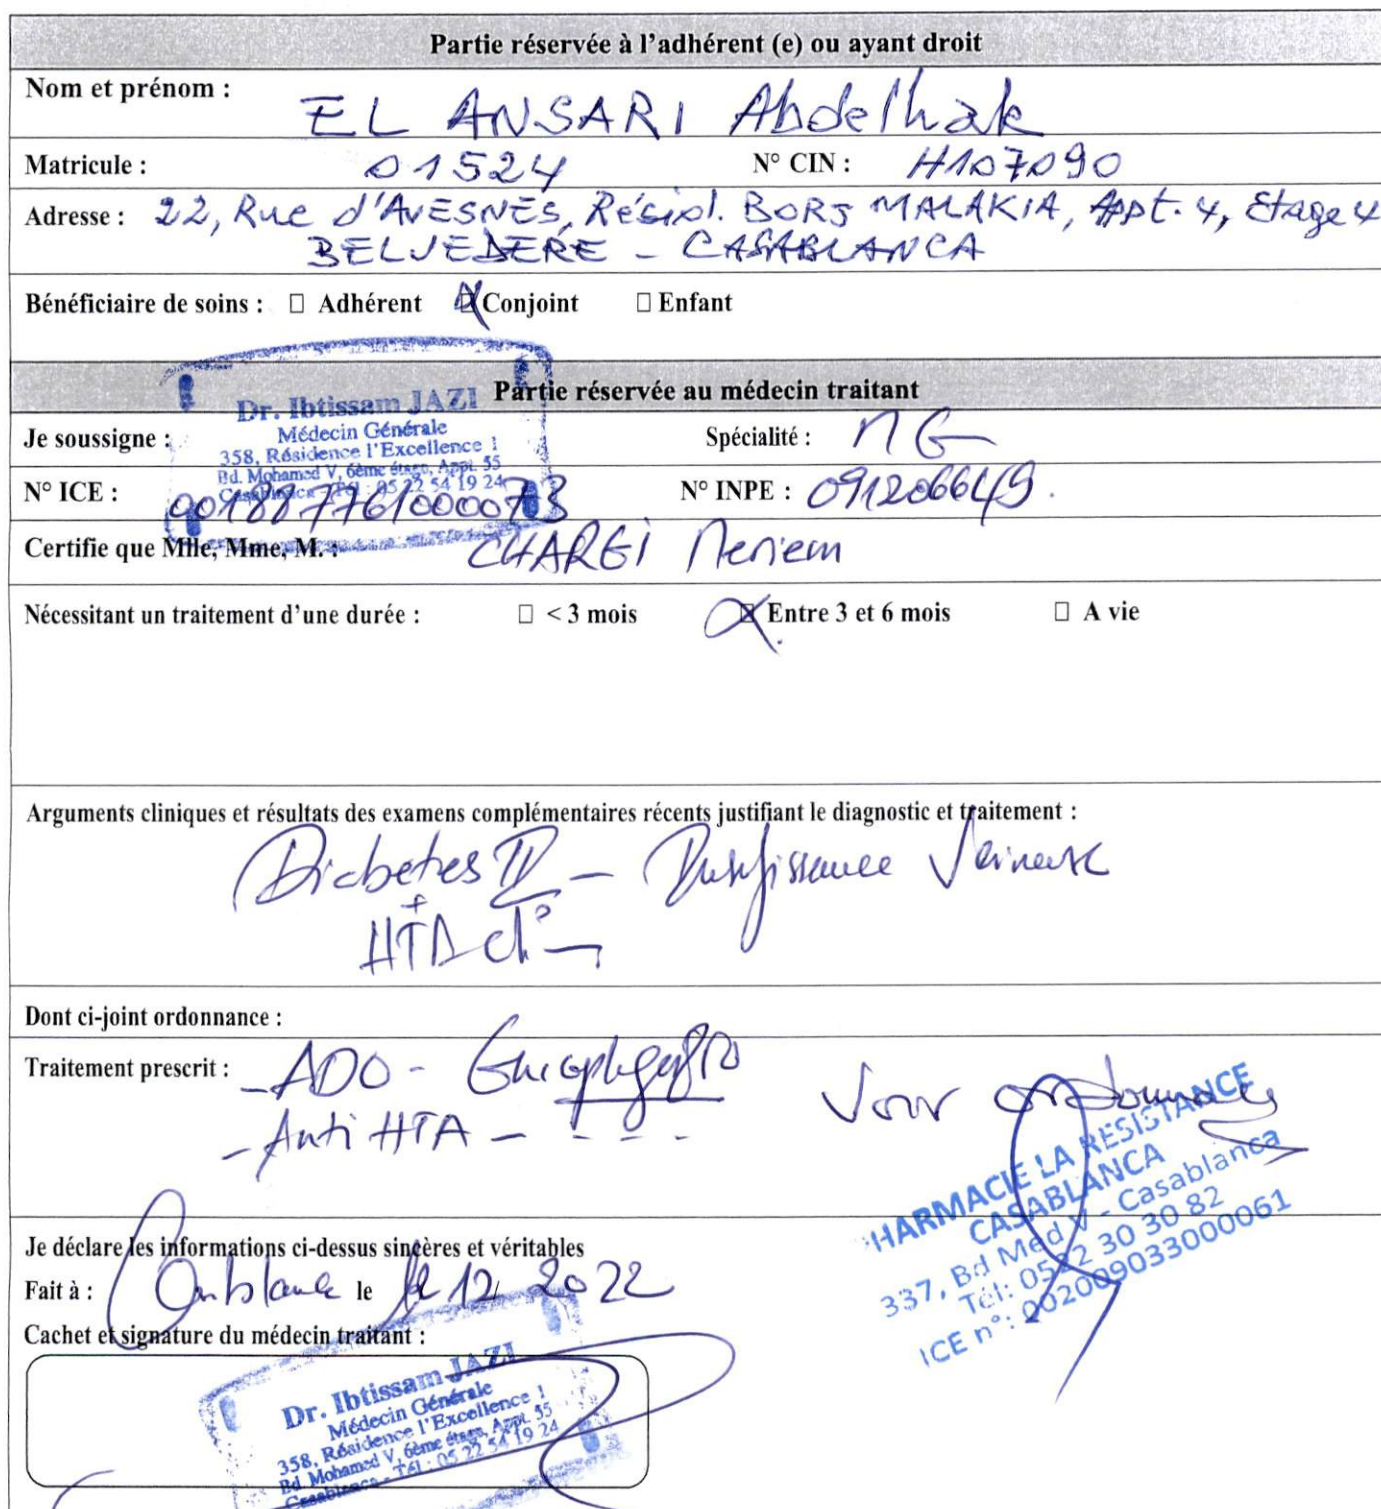 Partie réservée à l'adhérent (e) ou ayant droit
Nom et prénom : EL ANSARI Abdelhak
Matricule : 01524 N° CIN : H107090
Adresse : 22, Rue d'AVESNES, Résid. BORJ MALAKIA, Appt. 4, Etage 4
BELVEDERE - CASABLANCA
Bénéficiaire de soins : □ Adhérent ☒ Conjoint □ Enfant
Partie réservée au médecin traitant
Dr. Ibtissam JAZI
Médecin Générale
358, Résidence l'Excellence 1
Bd. Mohamed V, 6ème étage, Appt. 55
Casablanca - Tél : 05 22 54 19 24
Je soussigne : Spécialité : MG
N° ICE : 001887761000073 N° INPE : 091206649.
Certifie que Mlle, Mme, M. : CHARGI Meriem
Nécessitant un traitement d'une durée : □ < 3 mois ☒ Entre 3 et 6 mois □ A vie
Arguments cliniques et résultats des examens complémentaires récents justifiant le diagnostic et traitement :
Diabetes II - Insuffisance Veineuse
+
HTA
Dont ci-joint ordonnance :
Traitement prescrit : - ADO -
- Anti HTA - - - -
Voir ordonnance
PHARMACIE LA RESISTANCE
CASABLANCA
337, Bd Med V - Casablanca
Tél: 0522 30 30 82
ICE n°: 002009033000061
Je déclare les informations ci-dessus sincères et véritables
Fait à : Casablanca le 12 2022
Cachet et signature du médecin traitant :
Dr. Ibtissam JAZI
Médecin Générale
358, Résidence l'Excellence 1
Bd. Mohamed V, 6ème étage, Appt. 55
Casablanca - Tél : 05 22 54 19 24